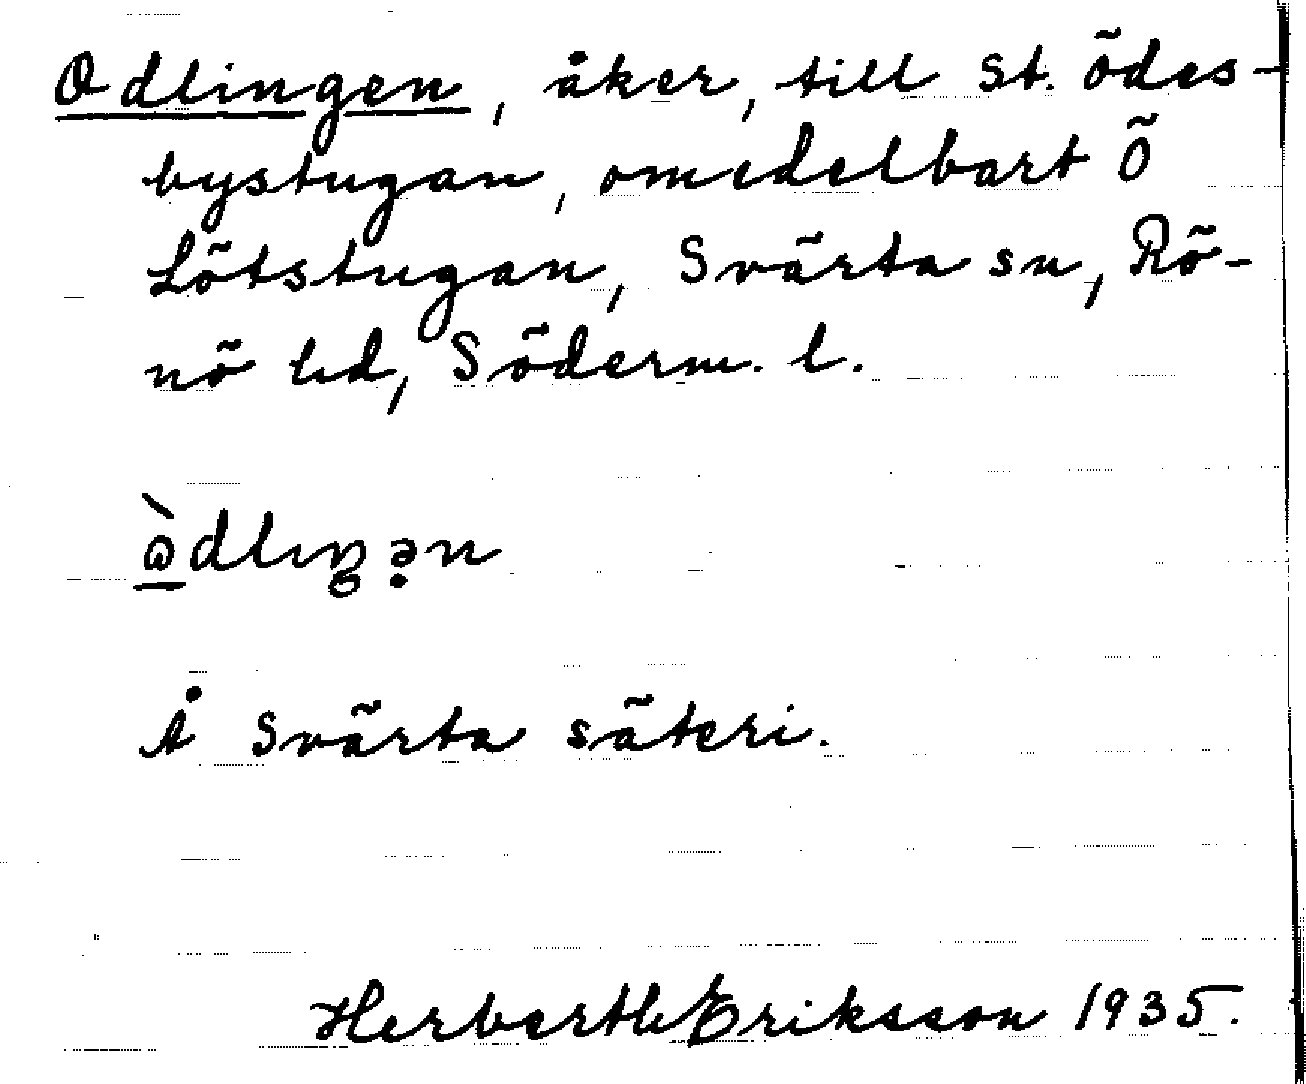 Odlingen, åker, till St. Ödes-
bystugan, omedelbart Ö
Lötstugan, Svärta sn, Rö-
nö hd, Söderm. l.
ὼdlıŋən
Å Svärta säteri.
Herberth Eriksson 1935.